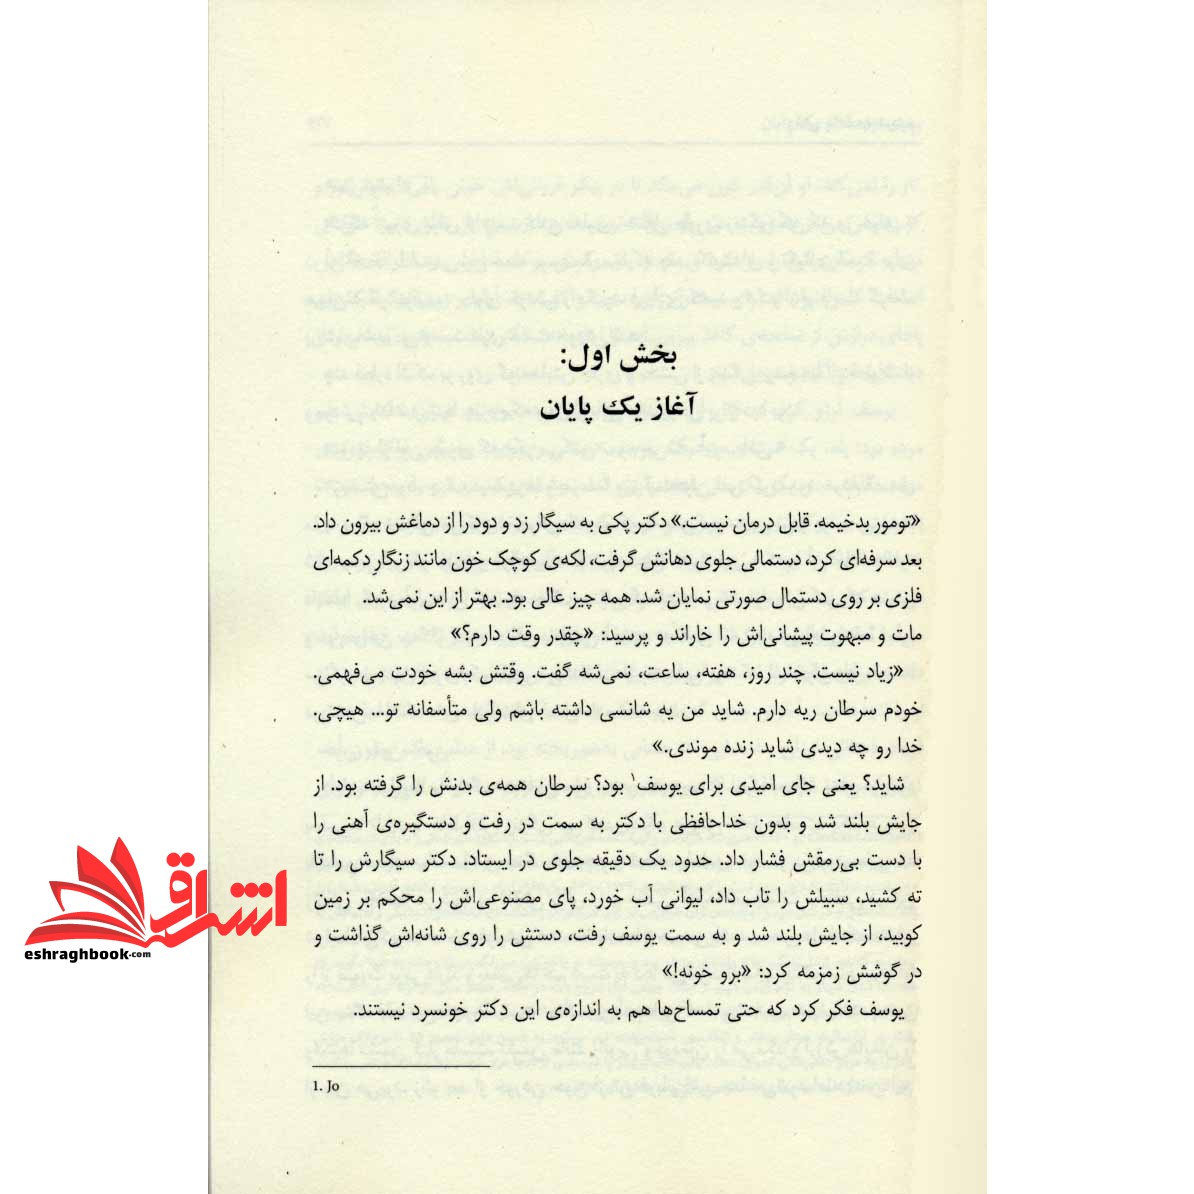 بخش اول:
آغاز یک پایان
«تومور بدخیمه. قابل درمان نیست.» دکتر پکی به سیگار زد و دود را از دماغش بیرون داد.
بعد سرفه‌ای کرد، دستمالی جلوی دهانش گرفت، لکه‌ی کوچک خون مانند زنگارِ دکمه‌ای
فلزی بر روی دستمال صورتی نمایان شد. همه چیز عالی بود. بهتر از این نمی‌شد.
مات و مبهوت پیشانی‌اش را خاراند و پرسید: «چقدر وقت دارم؟»
«زیاد نیست. چند روز، هفته، ساعت، نمی‌شه گفت. وقتش بشه خودت می‌فهمی.
خودم سرطان ریه دارم. شاید من یه شانسی داشته باشم ولی متأسفانه تو... هیچی.
خدا رو چه دیدی شاید زنده موندی.»
شاید؟ یعنی جای امیدی برای یوسف۱ بود؟ سرطان همه‌ی بدنش را گرفته بود. از
جایش بلند شد و بدون خداحافظی با دکتر به سمت در رفت و دستگیره‌ی آهنی را
با دست بی‌رمقش فشار داد. حدود یک دقیقه جلوی در ایستاد. دکتر سیگارش را تا
ته کشید، سبیلش را تاب داد، لیوانی آب خورد، پای مصنوعی‌اش را محکم بر زمین
کوبید، از جایش بلند شد و به سمت یوسف رفت، دستش را روی شانه‌اش گذاشت و
در گوشش زمزمه کرد: «برو خونه!»
یوسف فکر کرد که حتی تمساح‌ها هم به اندازه‌ی این دکتر خونسرد نیستند.
1. Jo
اشراق
eshraghbook.com